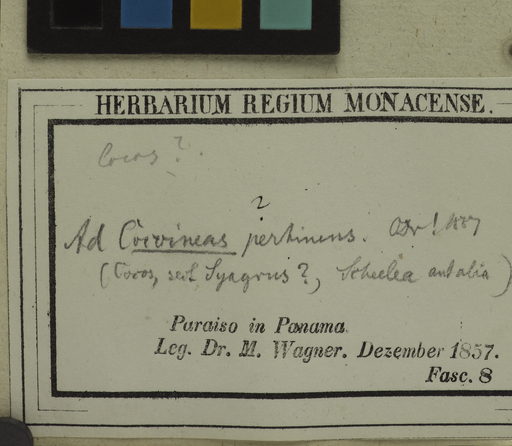 HERBARIUM REGIUM MONACENSE.
Cocos ?.
2
Ad Cocoineas pertinens. 1887
(Cocos, sect. Syagrus ?, Scheelea aut alia)
Paraiso in Panama.
Leg. Dr. M. Wagner. Dezember 1857.
Fasc. 8